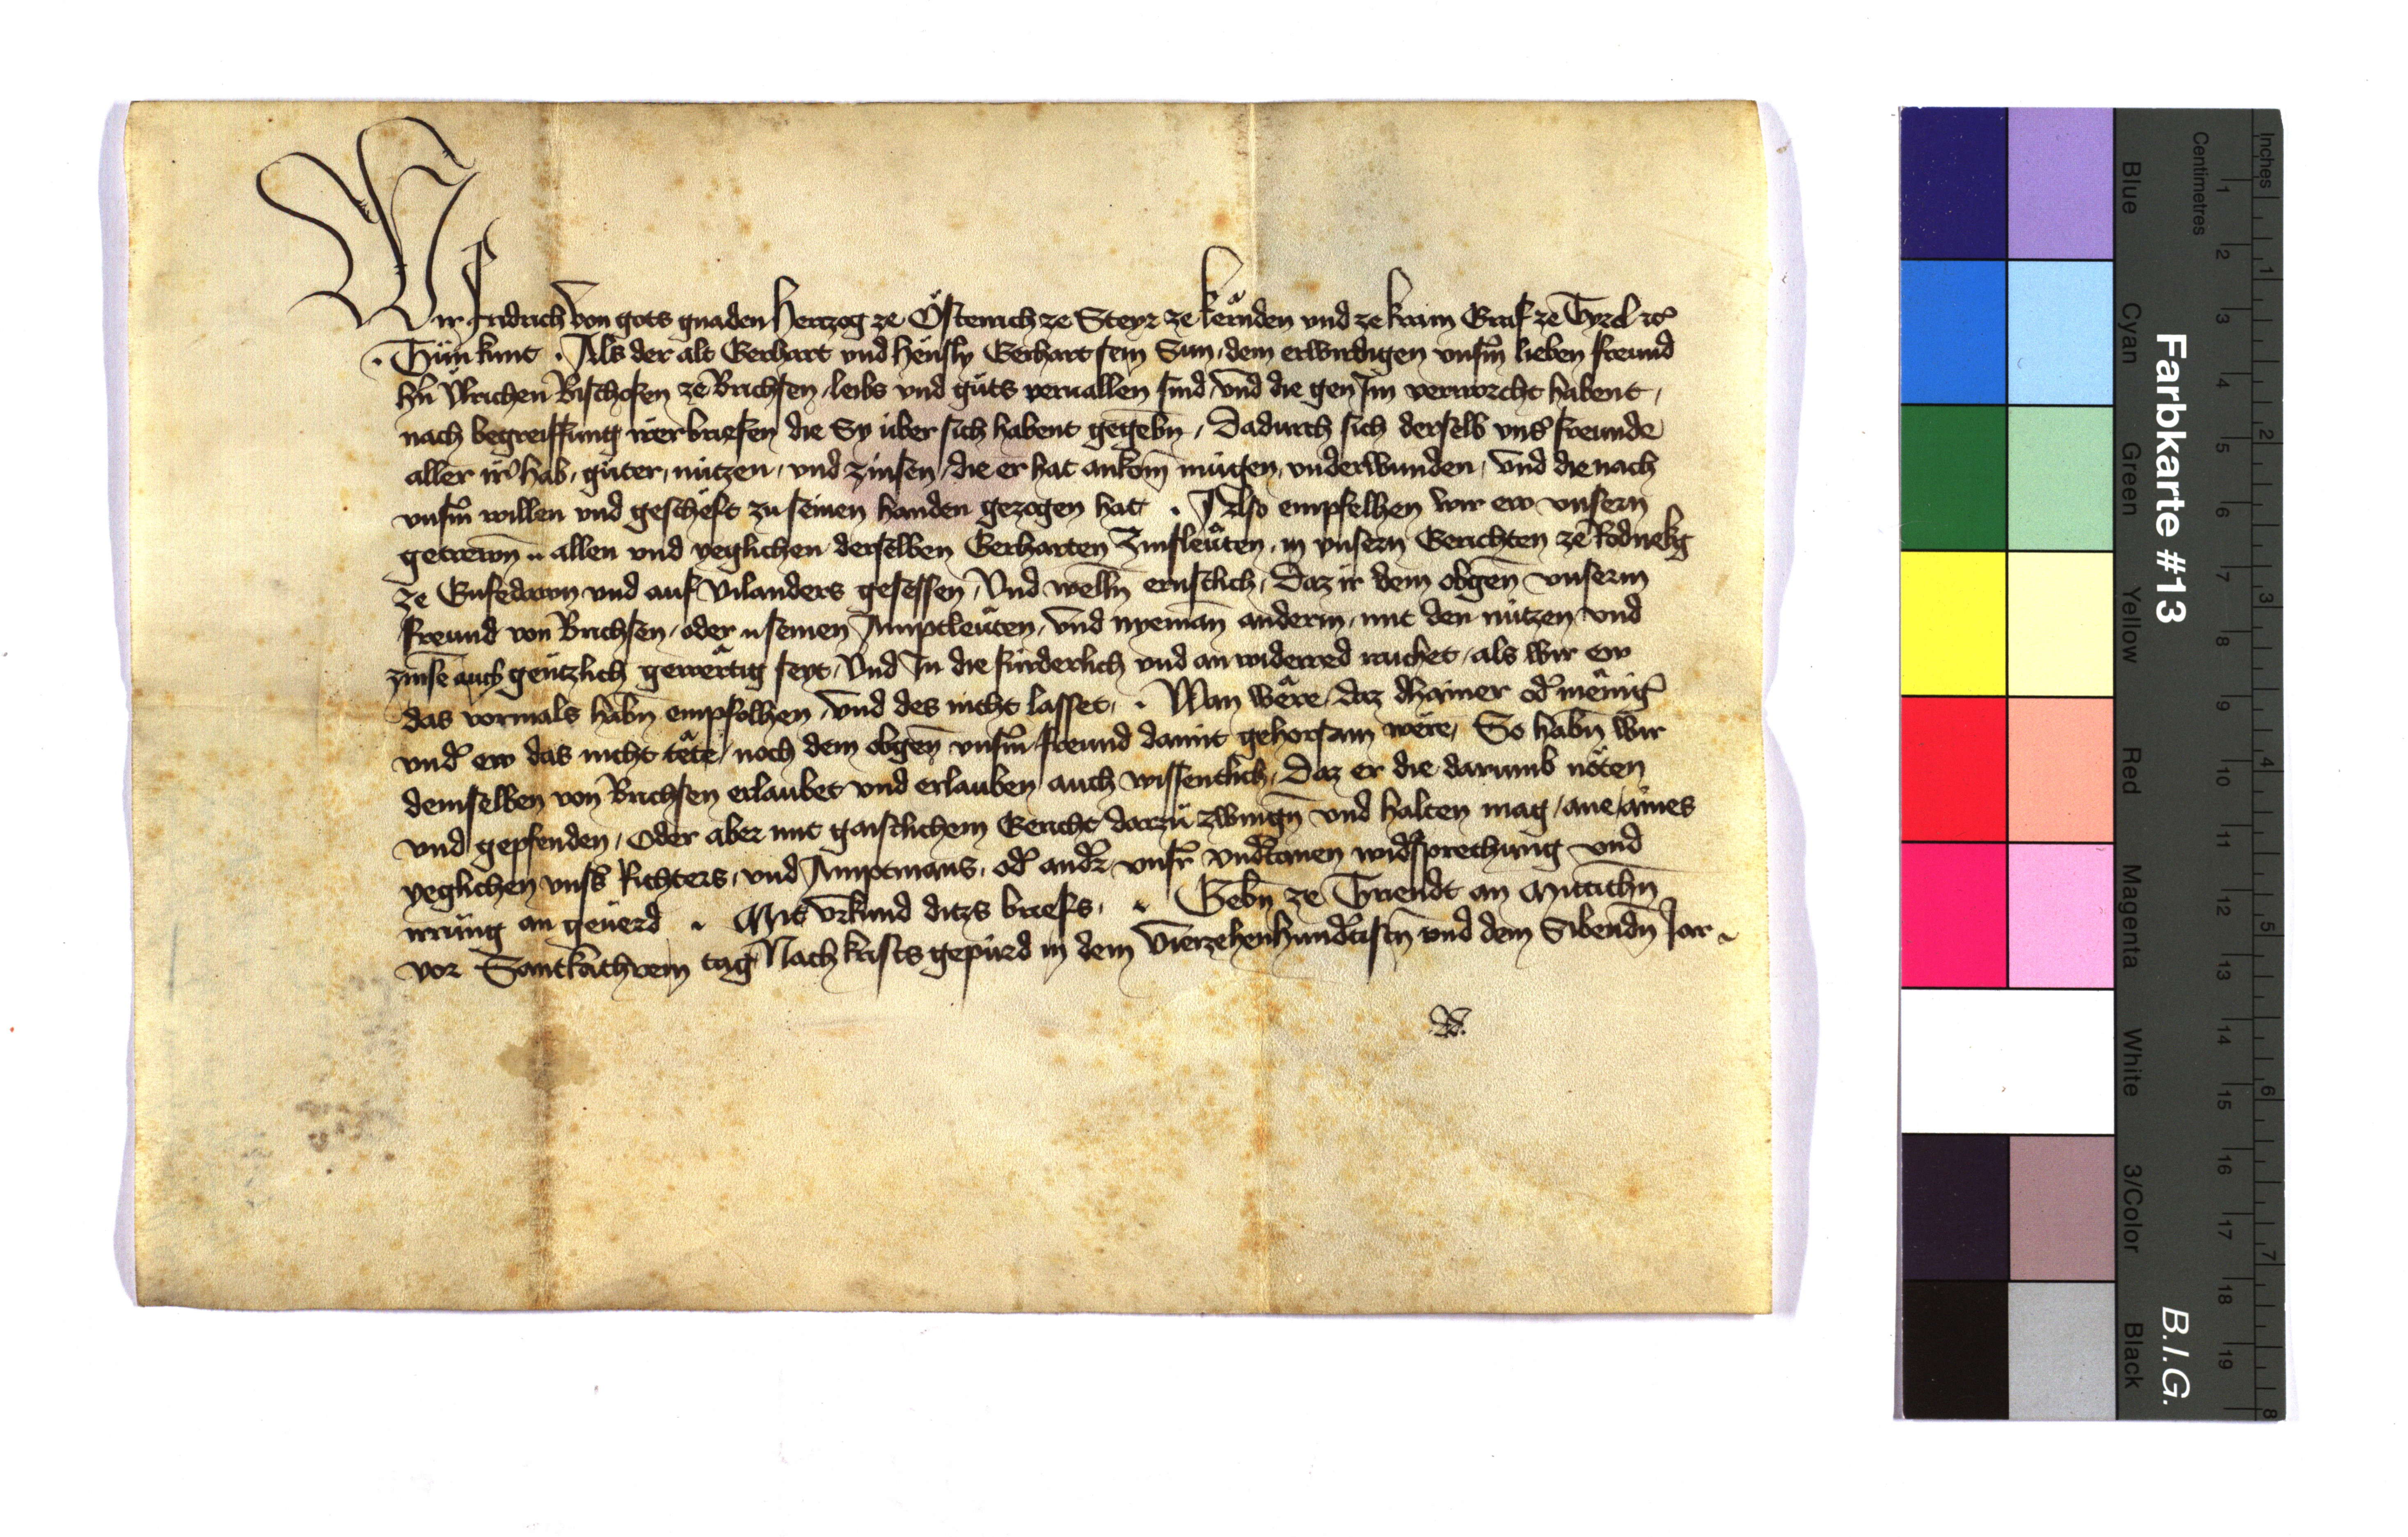 Wir fridrich von gots gnaden Hertzog ze Österrich ze Steyr ze kërnden und ze krain Graf ze Tyrol ꝛc
. Tůn kunt . Als der alt Gerhart und Hënsly Gerhart sein Sun, dem erwirdigen unsm̄ lieben freund
hn̄ Ulrichen Bischofen ze Brichsen, leibs und gůts veruallen sind, und die gen Im verworcht habent,
nach begreiffung irer briefen die Sy über sich habent gegebn̄, Dadurch sich derselb uns freunde
aller ir hab, gůter, nützen, und zinsen, die er hat ankom̄ mügen, underwunden, und die nach
unsm̄ willen und geschëft zu seinen handen gezogen hat . Also empfelhen wir ew unsern
getrewn̄ .. allen und yeglichen derselben Gerharten Zinsleüten, in unsern Gerichten ze Rodnekg
ze Gufedawn und auf Vilanders gesessen, Und welln̄ ernstlich, Daz ir dem obgen̄ unserm
freund von Brichsen, oder .. seinen Amptleüten, und nyeman̄ anderm, mit den nützen und
zinse auch gëntzlich gewërtig seyt, Und In die fürderlich und an widerred raichet, als wir ew
das vormals habn̄ empfolhen, und des nicht lasset, . Wan wëre, daz dhainer od mënig
und ew das nicht tëte, noch dem obgen̄ unsm̄ freund damit gehorsam wëre, So habn̄ wir
demselben von Brichsen erlaubet und erlauben auch wissentlich, Daz er die darumb nöten
und gepfenden, Oder aber mit gaistlichem Gericht darzů zwingn̄ und halten mag, ane, aines
yeglichen unss Richters, und Amptmans, od andr unsr undtanen widsprechung und
irrung an geuerd . Mit urkund ditzs briefs, . Gebn̄ ze Triendt an Mittichn̄
vor Sant kathrein tag Nach krists gepurd in dem vierzehenhundtistn̄ und dem Sibendn̄ Jar .
Farbkarte #13
B.I.G.
Inches
Centimetres
1 2 3 4 5 6 7 8 9 10 11 12 13 14 15 16 17 18 19
1 2 3 4 5 6 7 8
Blue
Cyan
Green
Yellow
Red
Magenta
White
3/Color
Black